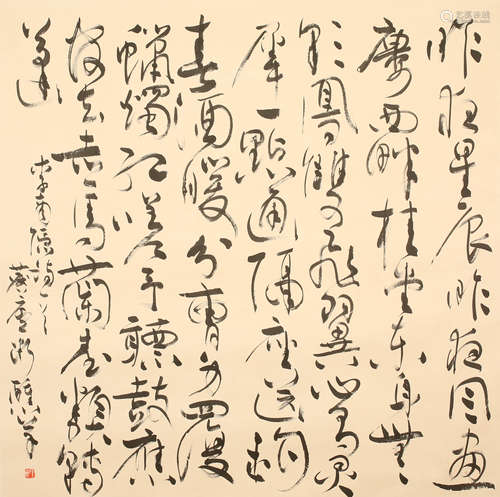 昨夜星辰昨夜风畫
樓西畔桂堂东身無
彩鳳雙飛翼心有灵
犀一點通隔座送鉤
春酒暖分曹射覆
蠟燭红嗟予聽鼓應
官去走馬蘭臺類轉
蓬
李商隱詩一首